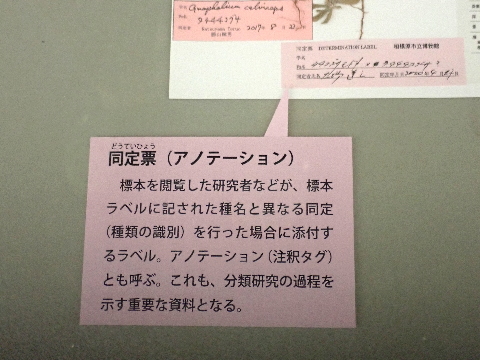 Gnaphalium calviceps
同定票 DETERMINATION LABEL 相模原市立博物館
学名
和名
どうていひょう
同定票（アノテーション）
標本を閲覧した研究者などが、標本
ラベルに記された種名と異なる同定
（種類の識別）を行った場合に添付す
るラベル。アノテーション（注釈タグ）
とも呼ぶ。これも、分類研究の過程を
示す重要な資料となる。